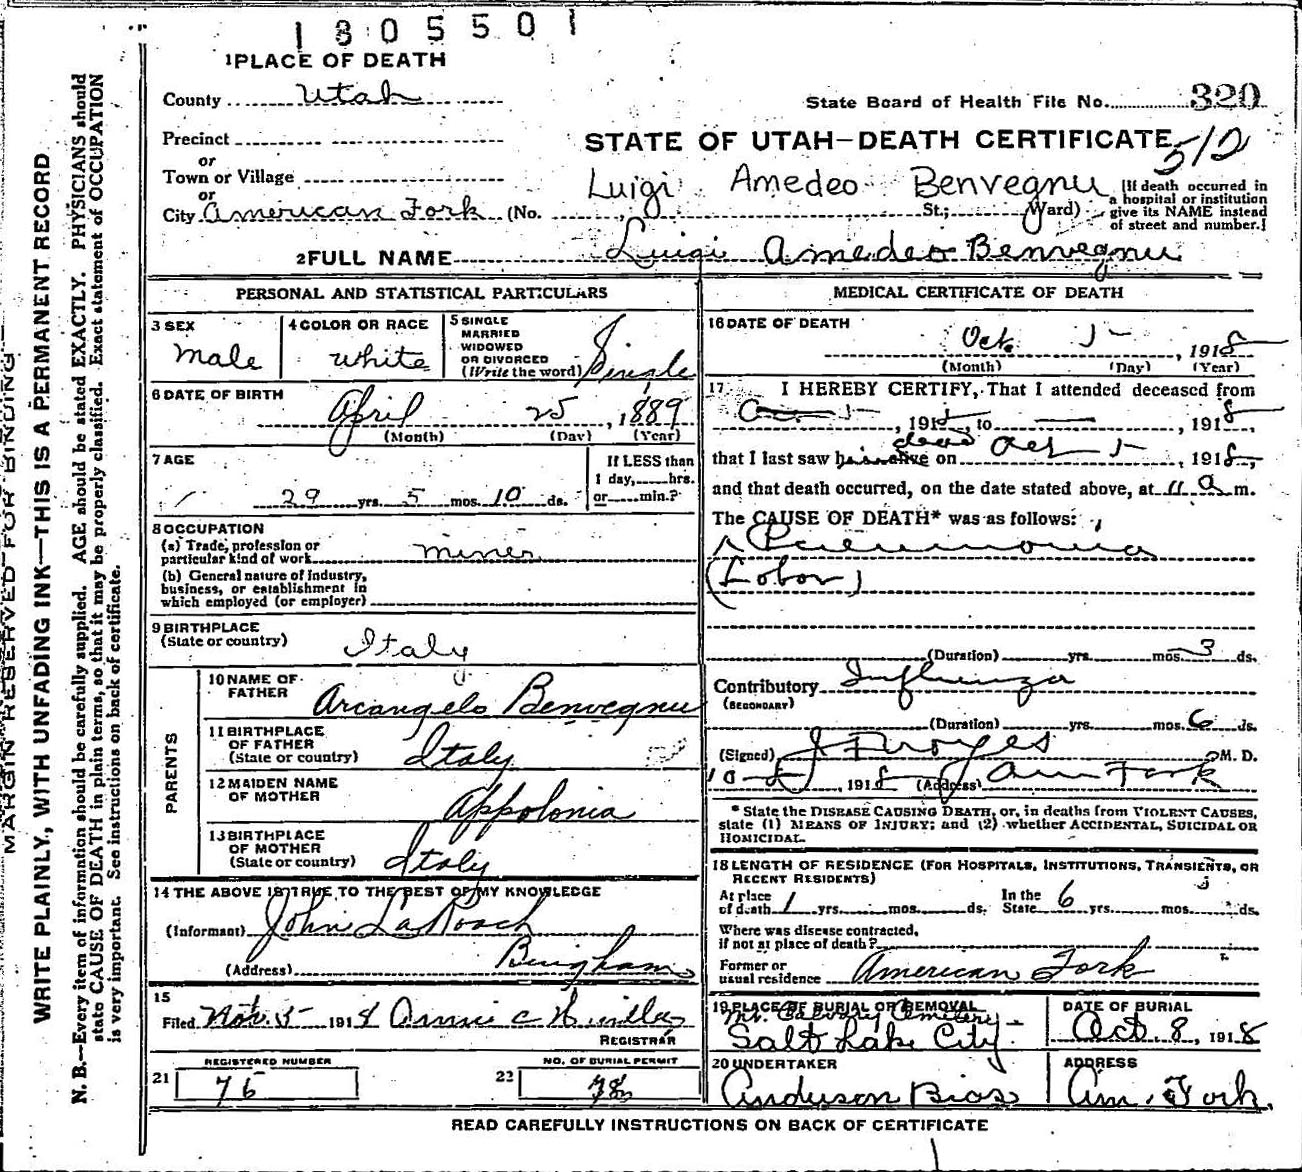 1805501
1 PLACE OF DEATH
County Utah
State Board of Health File No. 320
Precinct
STATE OF UTAH—DEATH CERTIFICATE
512
or
Town or Village
Luigi Amedeo Benvegnu
or
City American Fork (No. St.; Ward)
[If death occurred in
a hospital or institution
give its NAME instead
of street and number.]
2 FULL NAME Luigi Amedeo Benvegnu
PERSONAL AND STATISTICAL PARTICULARS
3 SEX
male
4 COLOR OR RACE
white
5 SINGLE
MARRIED
WIDOWED
OR DIVORCED
(Write the word) Single
6 DATE OF BIRTH
April 25, 1889
(Month) (Day) (Year)
7 AGE
29 yrs. 5 mos. 10 ds.
If LESS than
1 day, hrs.
or min.?
8 OCCUPATION
(a) Trade, profession or
particular kind of work miner
(b) General nature of industry,
business, or establishment in
which employed (or employer)
9 BIRTHPLACE
(State or country) Italy
PARENTS
10 NAME OF
FATHER Arcangelo Benvegnu
11 BIRTHPLACE
OF FATHER
(State or country) Italy
12 MAIDEN NAME
OF MOTHER Appolonia
13 BIRTHPLACE
OF MOTHER
(State or country) Italy
14 THE ABOVE IS TRUE TO THE BEST OF MY KNOWLEDGE
(Informant) John LaRoach
(Address) Bingham
15
Filed Nov. 5 1918 Annie C
REGISTRAR
REGISTERED NUMBER
21 76
NO. OF BURIAL PERMIT
22 78
MEDICAL CERTIFICATE OF DEATH
16 DATE OF DEATH
Oct. 5, 1918
(Month) (Day) (Year)
17 I HEREBY CERTIFY, That I attended deceased from
, 191 , to , 1918
that I last saw h alive dead on Oct 5, 1918,
and that death occurred, on the date stated above, at 11 a m.
The CAUSE OF DEATH* was as follows:
Pneumonia
(Lobar)
(Duration) yrs. mos. 3 ds.
Contributory Influenza
(SECONDARY)
(Duration) yrs. mos. 6 ds.
(Signed) M. D.
10-5, 1918 (Address) Am Fork
* State the DISEASE CAUSING DEATH, or, in deaths from VIOLENT CAUSES,
state (1) MEANS OF INJURY; and (2) whether ACCIDENTAL, SUICIDAL OR
HOMICIDAL.
18 LENGTH OF RESIDENCE (FOR HOSPITALS, INSTITUTIONS, TRANSIENTS, OR
RECENT RESIDENTS)
At place
of death 1 yrs. mos. ds.
In the
State 6 yrs. mos. ds.
Where was disease contracted,
if not at place of death?
Former or
usual residence American Fork
19 PLACE OF BURIAL OR REMOVAL
Mt. Calvary Cemetery
Salt Lake City.
DATE OF BURIAL
Oct. 8, 1918
20 UNDERTAKER
Anderson Bros
ADDRESS
Am. Fork.
READ CAREFULLY INSTRUCTIONS ON BACK OF CERTIFICATE
MARGIN RESERVED FOR BINDING
WRITE PLAINLY, WITH UNFADING INK—THIS IS A PERMANENT RECORD
N. B.—Every item of information should be carefully supplied. AGE should be stated EXACTLY. PHYSICIANS should
state CAUSE OF DEATH in plain terms, so that it may be properly classified. Exact statement of OCCUPATION
is very important. See instructions on back of certificate.